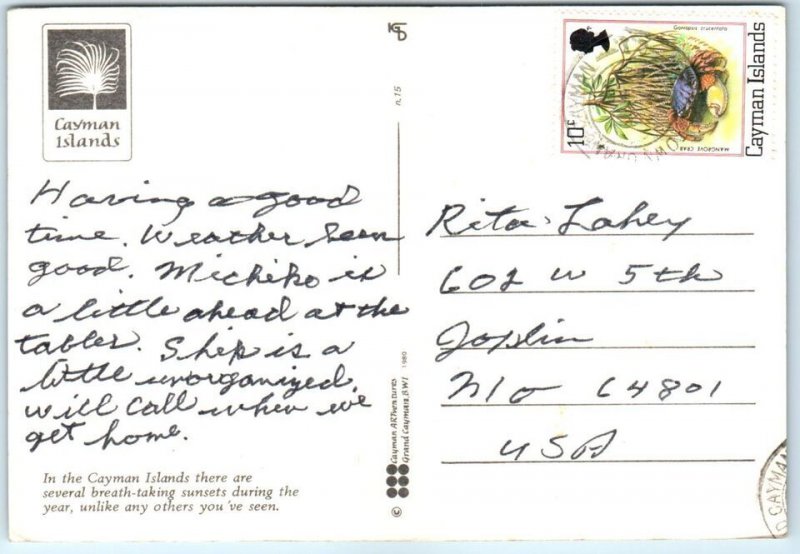 Cayman
Islands
Having a good
time. Weather been
good. Michiko is
a little ahead at the
tables. Ship is a
little unorganized.
will call when we
get home.
In the Cayman Islands there are
several breath-taking sunsets during the
year, unlike any others you've seen.
n.15
Cayman ARTventures 1980
Grand Cayman, B.W.I
10c
Cayman Islands
MANGROVE CRAB
CAYMAN
Rita Lahey
602 W 5th
Joplin
Mo 64801
USA
CAYMAN